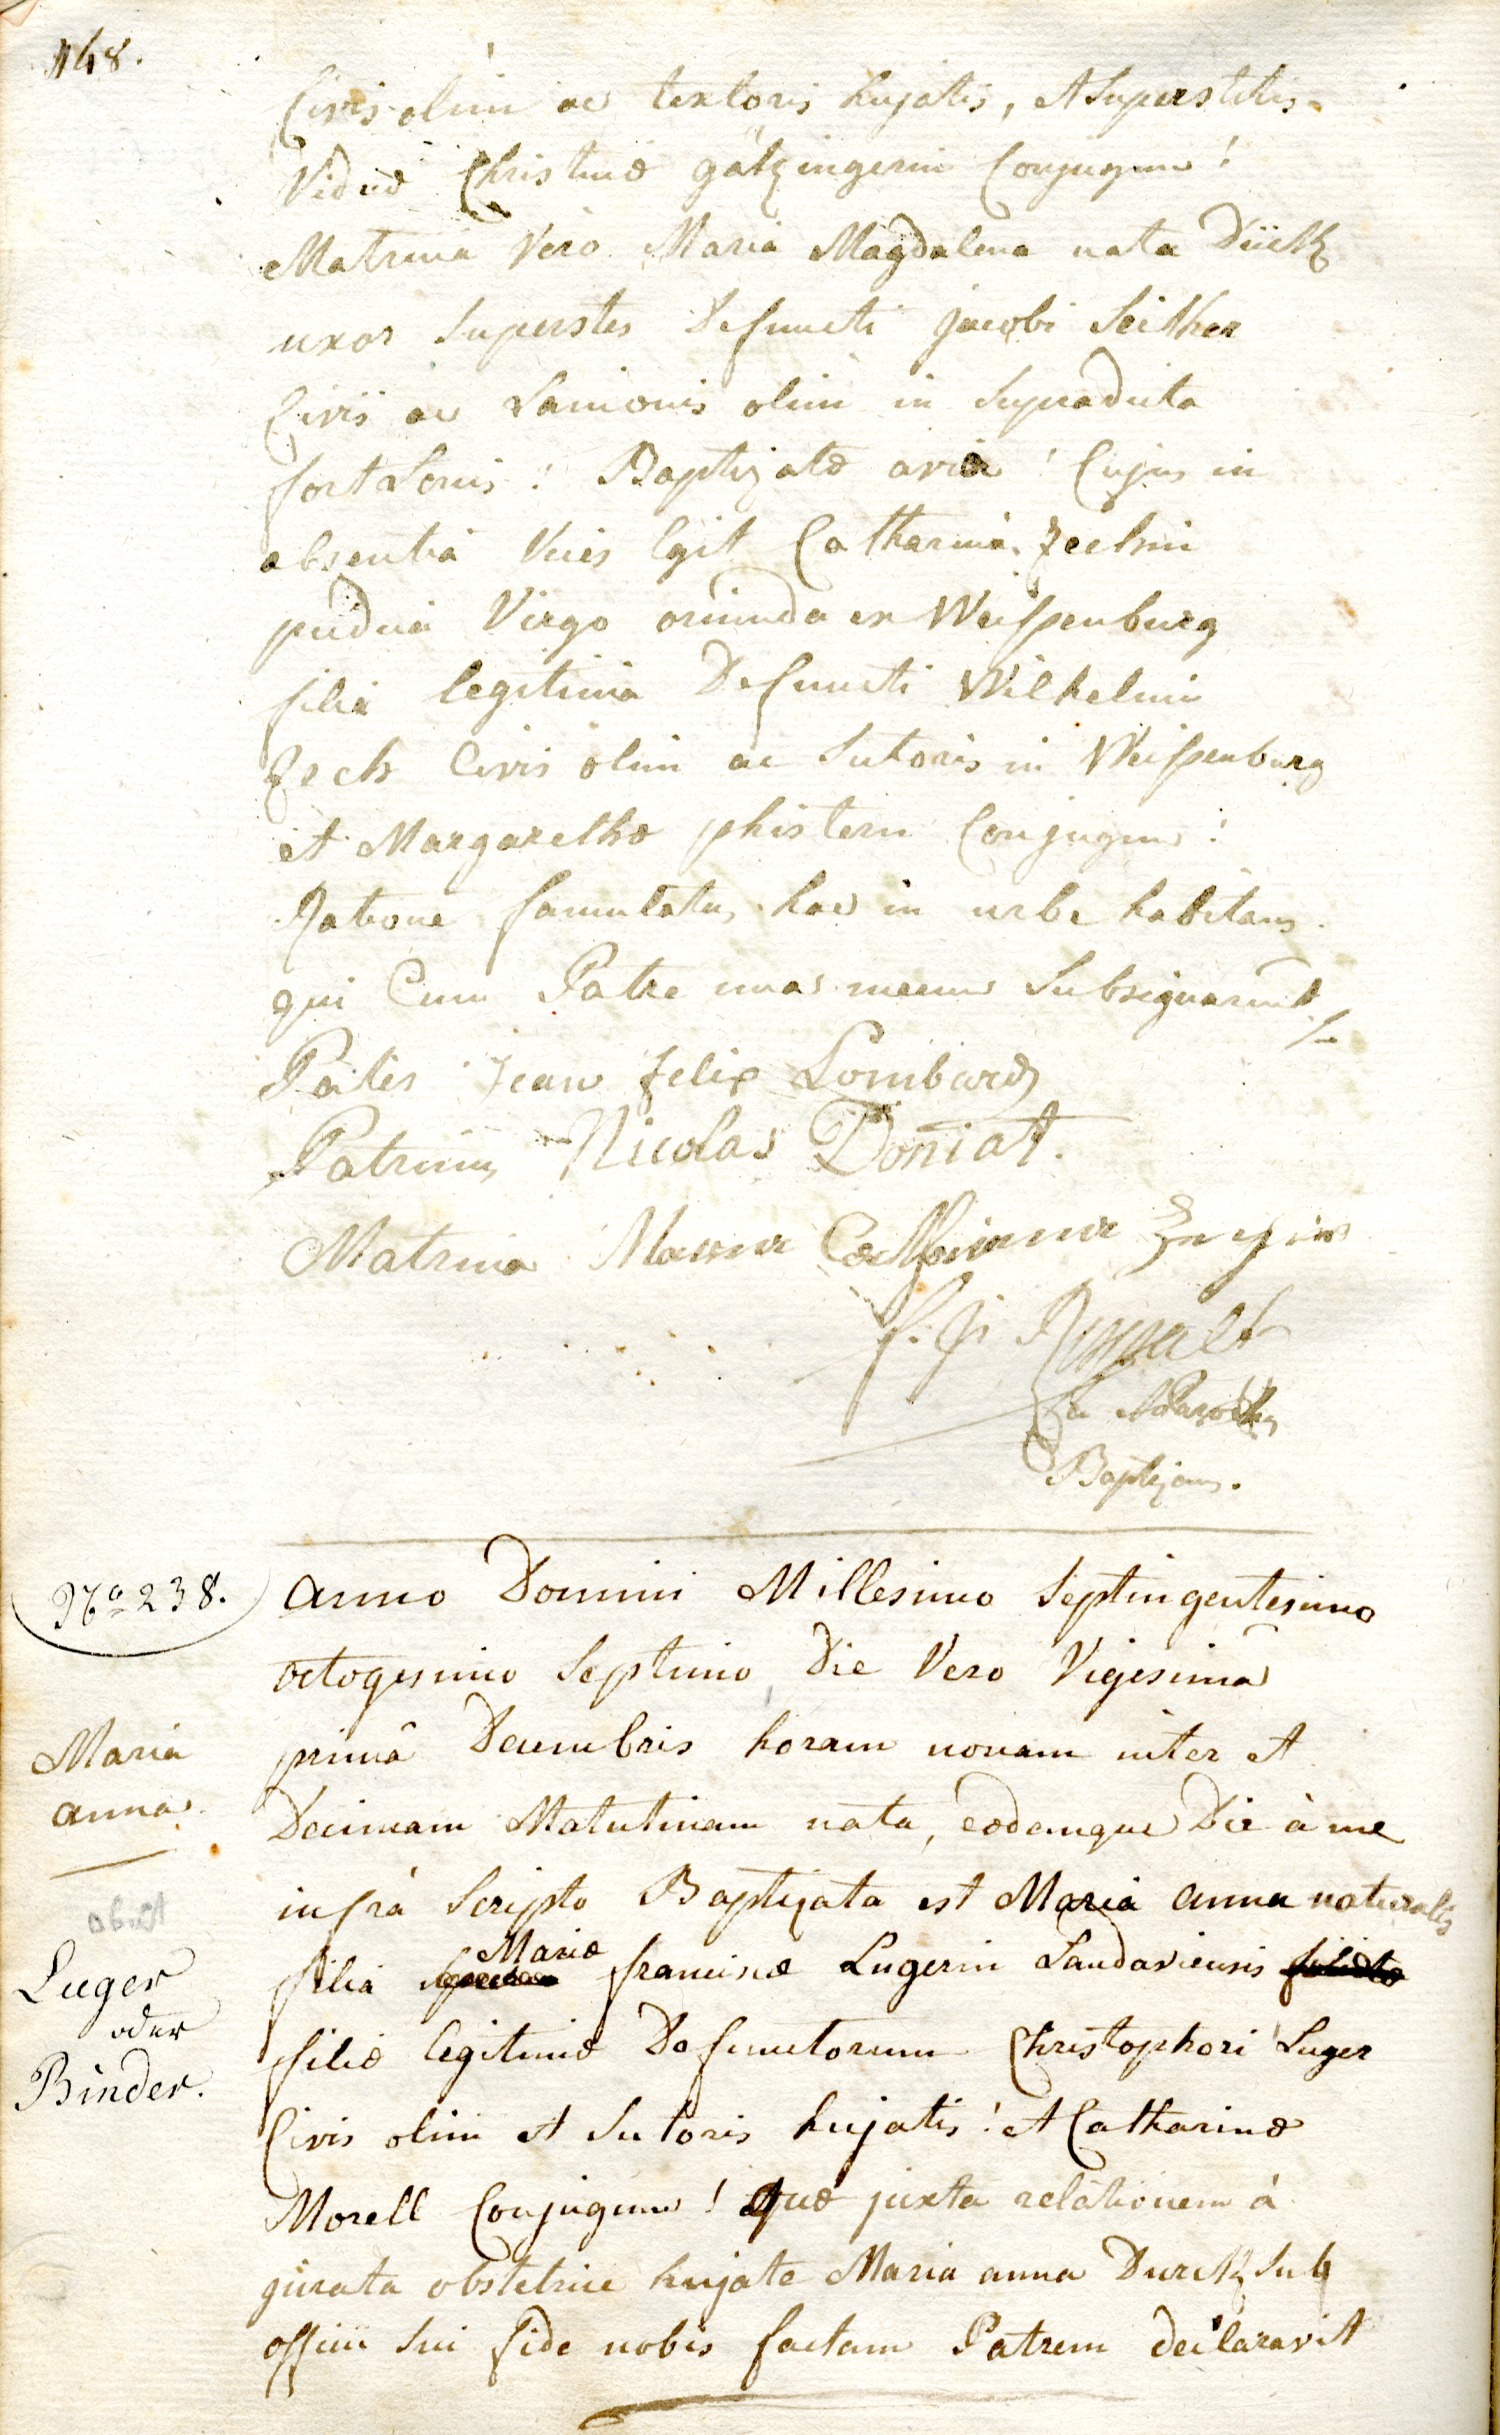 148.
Civis olim ac textoris hujatis, et Superstitis
Viduæ Christinæ gätzingerin Conjugum!
Matrina Vero Maria Magdalena nata Dürck
uxor Superstes Defuncti jacobi Seither
Civis ac Lanionis olim in Supradicta
fort Louis! Baptizatæ avia! Cujus in
absentia Vices Egit Catharina Zechin
pudica Virgo oriunda ex Weissenburg
filia legitima Defuncti Wilhelmi
Zech Civis olim ac Sutoris in Weissenburg
et Margarethæ phisterin Conjugum!
Ratione famulatus hac in urbe habitans.
qui Cum Patre una mecum Subsignarunt
Pater Jean felix Lombard
Patrinus Nicolas Doniat.
Matrina
Baptizans.
No 238.
anno Domini Millesimo Septingentesimo
octogesimo Septimo Die Vero Vigesima
Maria
anna.
prima Decembris horam nonam inter et
Decimam Matutinam nata, eodemque Die à me
infrà Scripto Baptizata est Maria anna naturalis
abiit
filia Mariæ franciscæ Lugerin Landaviensis
Luger
oder
Binder.
filiæ legitimæ Defunctorum Christophori Luger
Civis olim et Sutoris hujatis! et Catharinæ
Morell Conjugum! Quæ juxta relationem à
jurata obstetrice hujate Maria anna Durck Sub
officii Sui fide nobis factam Patrem declaravit